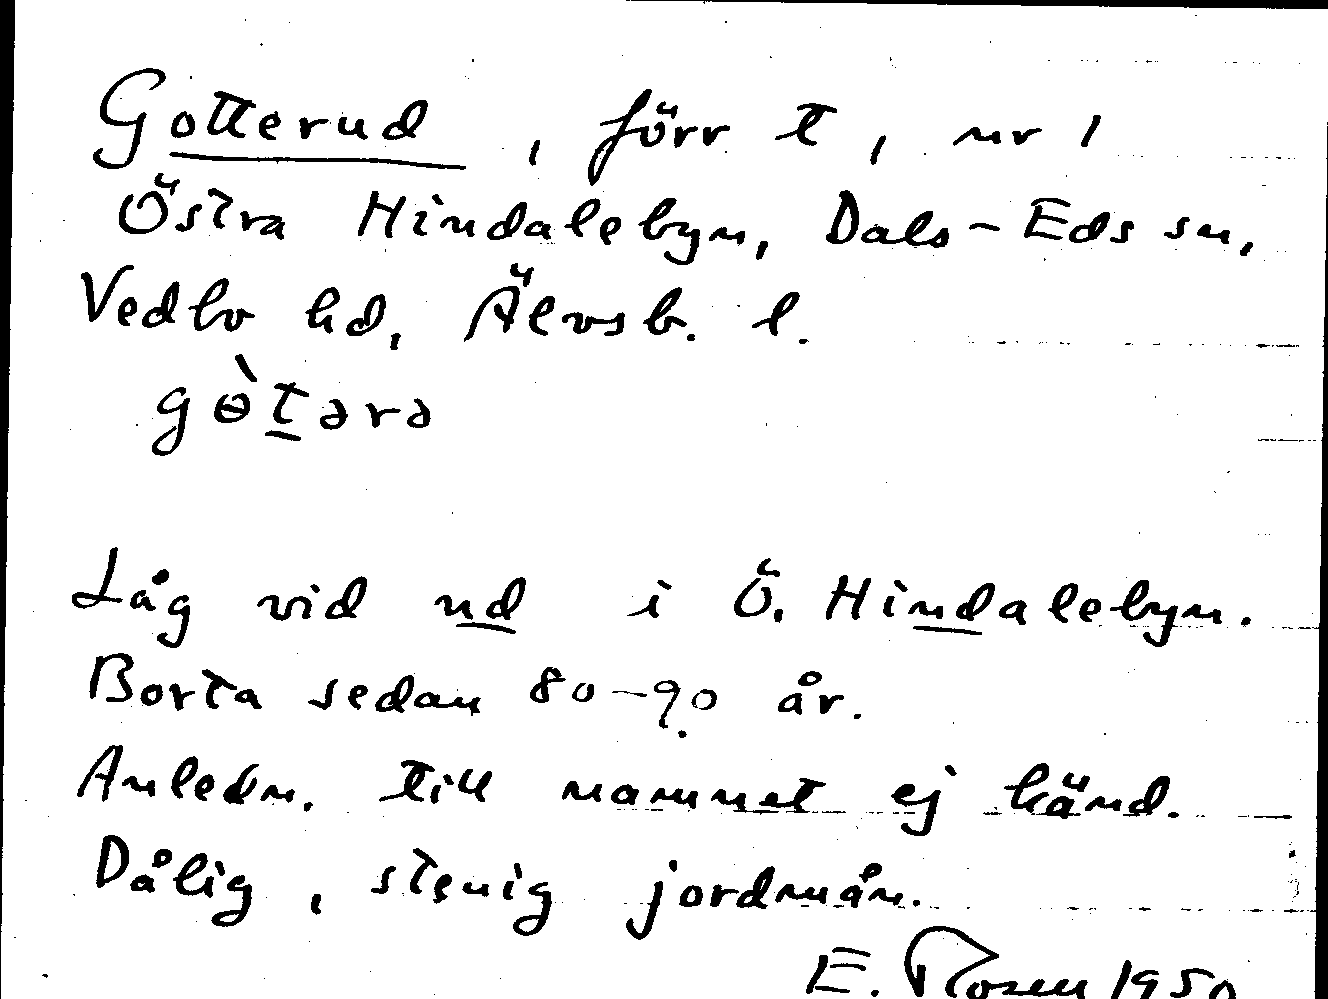 Gotterud, förr t, nr 1
Östra Hindalebyn, Dals-Eds sn,
Vedbo hd, Älvsb. l.
gɵ̀t̲ərə
Låg vid nd i Ö. Hindalebyn.
Borta sedan 80-90 år.
Anledn. till namnet ej känd.
Dålig, stenig jordmån.
E. Rosen 1950